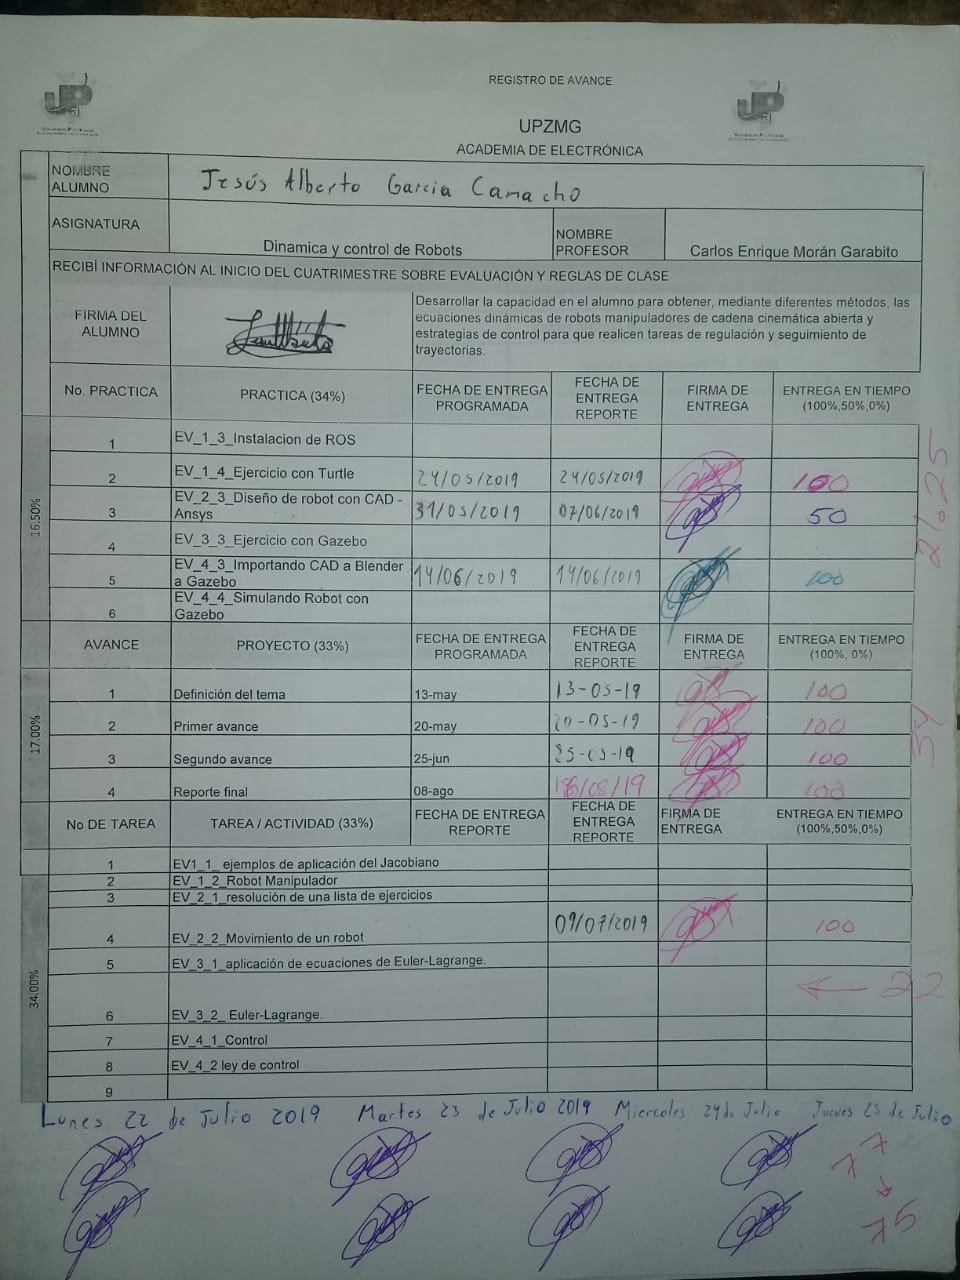 REGISTRO DE AVANCE
UPZMG
ACADEMIA DE ELECTRÓNICA
NOMBRE ALUMNO Jesús Alberto Garcia Camacho
ASIGNATURA Dinamica y control de Robots NOMBRE PROFESOR Carlos Enrique Morán Garabito
RECIBÍ INFORMACIÓN AL INICIO DEL CUATRIMESTRE SOBRE EVALUACIÓN Y REGLAS DE CLASE
FIRMA DEL ALUMNO
Desarrollar la capacidad en el alumno para obtener, mediante diferentes métodos, las
ecuaciones dinámicas de robots manipuladores de cadena cinemática abierta y
estrategias de control para que realicen tareas de regulación y seguimiento de
trayectorias.
No. PRACTICA PRACTICA (34%) FECHA DE ENTREGA PROGRAMADA FECHA DE ENTREGA REPORTE FIRMA DE ENTREGA ENTREGA EN TIEMPO (100%,50%,0%)
16.50%
1 EV_1_3_Instalacion de ROS
2 EV_1_4_Ejercicio con Turtle 24/05/2019 24/05/2019 100
3 EV_2_3_Diseño de robot con CAD - Ansys 31/05/2019 07/06/2019 50
4 EV_3_3_Ejercicio con Gazebo
5 EV_4_3_Importando CAD a Blender a Gazebo 14/06/2019 14/06/2019 100
6 EV_4_4_Simulando Robot con Gazebo
AVANCE PROYECTO (33%) FECHA DE ENTREGA PROGRAMADA FECHA DE ENTREGA REPORTE FIRMA DE ENTREGA ENTREGA EN TIEMPO (100%, 0%)
17.00%
1 Definición del tema 13-may 13-05-19 100
2 Primer avance 20-may 20-05-19 100
3 Segundo avance 25-jun 100
4 Reporte final 08-ago 100
No DE TAREA TAREA / ACTIVIDAD (33%) FECHA DE ENTREGA REPORTE FECHA DE ENTREGA REPORTE FIRMA DE ENTREGA ENTREGA EN TIEMPO (100%,50%,0%)
34.00%
1 EV1_1_ ejemplos de aplicación del Jacobiano
2 EV_1_2_Robot Manipulador
3 EV_2_1_resolución de una lista de ejercicios
4 EV_2_2_Movimiento de un robot 09/07/2019 100
5 EV_3_1_aplicación de ecuaciones de Euler-Lagrange.
← 22
6 EV_3_2_ Euler-Lagrange.
7 EV_4_1_Control
8 EV_4_2 ley de control
9
Lunes 22 de Julio 2019 Martes 23 de Julio 2019 Miercoles 24 de Julio Jueves 25 de Julio
77
75